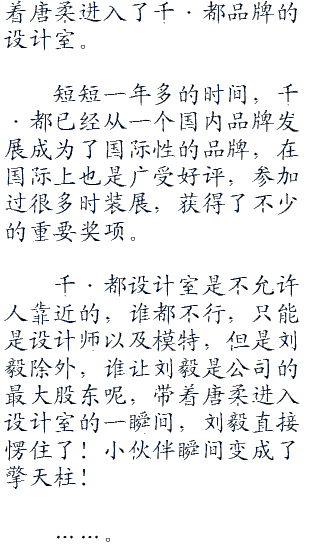 着唐柔进入了千·都品牌的
设计室。
短短一年多的时间，千
·都已经从一个国内品牌发
展成为了国际性的品牌，在
国际上也是广受好评，参加
过很多时装展，获得了不少
的重要奖项。
千·都设计室是不允许
人靠近的，谁都不行，只能
是设计师以及模特，但是刘
毅除外，谁让刘毅是公司的
最大股东呢，带着唐柔进入
设计室的一瞬间，刘毅直接
愣住了！小伙伴瞬间变成了
擎天柱！
……。